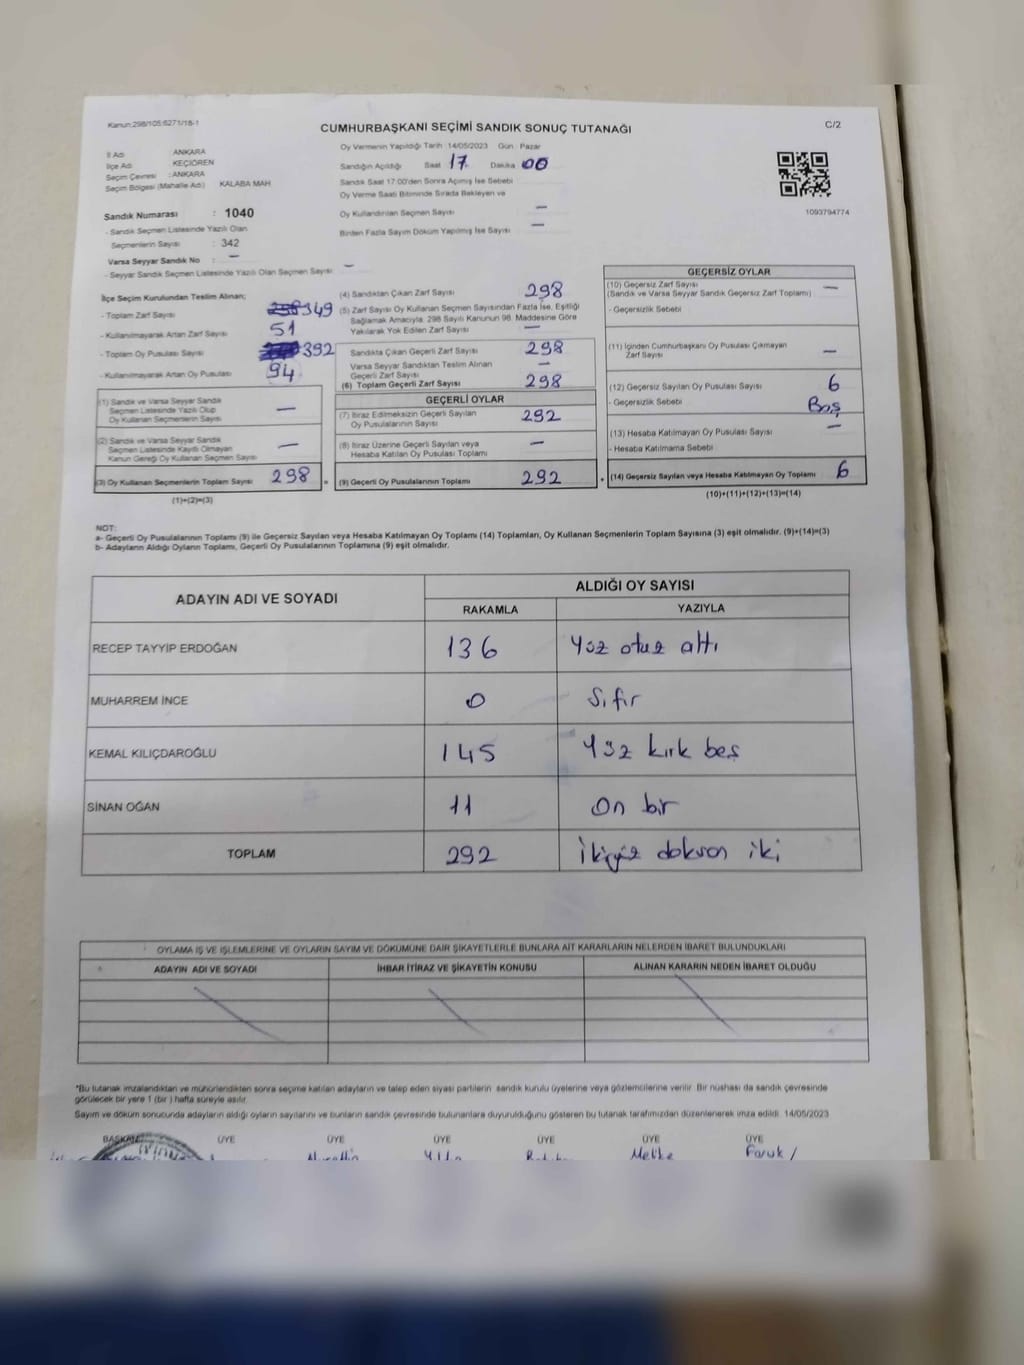 Kanun:298/105:6271/18-1
C/2
CUMHURBAŞKANI SEÇİMİ SANDIK SONUÇ TUTANAĞI
İl Adı ANKARA
İlçe Adı KEÇİÖREN
Seçim Çevresi : ANKARA
Seçim Bölgesi (Mahalle Adı) KALABA MAH
Sandık Numarası : 1040
- Sandık Seçmen Listesinde Yazılı Olan
Seçmenlerin Sayısı : 342
Varsa Seyyar Sandık No : —
- Seyyar Sandık Seçmen Listesinde Yazılı Olan Seçmen Sayısı: —
Oy Vermenin Yapıldığı Tarih :14/05/2023 Gün : Pazar
Sandığın Açıldığı Saat 17 Dakika 00
Sandık Saat 17:00'den Sonra Açılmış İse Sebebi
Oy Verme Saati Bitiminde Sırada Bekleyen ve
Oy Kullandırılan Seçmen Sayısı —
Birden Fazla Sayım Döküm Yapılmış İse Sayısı —
1093794774
İlçe Seçim Kurulundan Teslim Alınan;
- Toplam Zarf Sayısı 349
- Kullanılmayarak Artan Zarf Sayısı 51
- Toplam Oy Pusulası Sayısı 392
- Kullanılmayarak Artan Oy Pusulası 94
(1) Sandık ve Varsa Seyyar Sandık
Seçmen Listesinde Yazılı Olup
Oy Kullanan Seçmenlerin Sayısı —
(2) Sandık ve Varsa Seyyar Sandık
Seçmen Listesinde Kayıtlı Olmayan
Kanun Gereği Oy Kullanan Seçmen Sayısı —
(3) Oy Kullanan Seçmenlerin Toplam Sayısı 298
(1)+(2)=(3)
(4) Sandıktan Çıkan Zarf Sayısı 298
(5) Zarf Sayısı Oy Kullanan Seçmen Sayısından Fazla İse, Eşitliği
Sağlamak Amacıyla, 298 Sayılı Kanunun 98. Maddesine Göre
Yakılarak Yok Edilen Zarf Sayısı —
Sandıkta Çıkan Geçerli Zarf Sayısı 298
Varsa Seyyar Sandıktan Teslim Alınan
Geçerli Zarf Sayısı —
(6) Toplam Geçerli Zarf Sayısı 298
GEÇERLİ OYLAR
(7) İtiraz Edilmeksizin Geçerli Sayılan
Oy Pusulalarının Sayısı 292
(8) İtiraz Üzerine Geçerli Sayılan veya
Hesaba Katılan Oy Pusulası Toplamı —
(9) Geçerli Oy Pusulalarının Toplamı 292
GEÇERSİZ OYLAR
(10) Geçersiz Zarf Sayısı —
(Sandık ve Varsa Seyyar Sandık Geçersiz Zarf Toplamı)
- Geçersizlik Sebebi
(11) İçinden Cumhurbaşkanı Oy Pusulası Çıkmayan
Zarf Sayısı —
(12) Geçersiz Sayılan Oy Pusulası Sayısı 6
- Geçersizlik Sebebi Boş
(13) Hesaba Katılmayan Oy Pusulası Sayısı —
- Hesaba Katılmama Sebebi
(14) Geçersiz Sayılan veya Hesaba Katılmayan Oy Toplamı 6
(10)+(11)+(12)+(13)=(14)
NOT:
a- Geçerli Oy Pusulalarının Toplamı (9) ile Geçersiz Sayılan veya Hesaba Katılmayan Oy Toplamı (14) Toplamları, Oy Kullanan Seçmenlerin Toplam Sayısına (3) eşit olmalıdır. (9)+(14)=(3)
b- Adayların Aldığı Oyların Toplamı, Geçerli Oy Pusulalarının Toplamına (9) eşit olmalıdır.
ADAYIN ADI VE SOYADI
ALDIĞI OY SAYISI
RAKAMLA YAZIYLA
RECEP TAYYİP ERDOĞAN 136 Yüz otuz altı
MUHARREM İNCE 0 Sıfır
KEMAL KILIÇDAROĞLU 145 Yüz kırk beş
SİNAN OĞAN 11 On bir
TOPLAM 292 İkiyüz doksan iki
OYLAMA İŞ VE İŞLEMLERİNE VE OYLARIN SAYIM VE DÖKÜMÜNE DAİR ŞİKAYETLERLE BUNLARA AİT KARARLARIN NELERDEN İBARET BULUNDUKLARI
ADAYIN ADI VE SOYADI İHBAR İTİRAZ VE ŞİKAYETİN KONUSU ALINAN KARARIN NEDEN İBARET OLDUĞU
*Bu tutanak imzalandıktan ve mühürlendikten sonra seçime katılan adayların ve talep eden siyasi partilerin sandık kurulu üyelerine veya gözlemcilerine verilir. Bir nüshası da sandık çevresinde
görülecek bir yere 1 (bir) hafta süreyle asılır.
Sayım ve döküm sonucunda adayların aldığı oyların sayılarını ve bunların sandık çevresinde bulunanlara duyurulduğunu gösteren bu tutanak tarafımızdan düzenlenerek imza edildi. 14/05/2023
BAŞKAN ÜYE ÜYE ÜYE ÜYE ÜYE ÜYE
Melike Faruk /